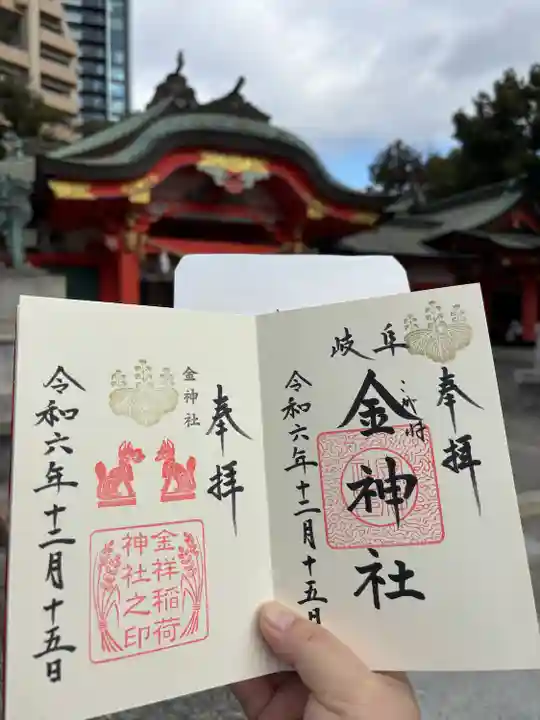 奉拝
岐阜
こがね
金神社
令和六年十二月十五日
奉拝
金神社
金祥稲荷
神社之印
令和六年十二月十五日